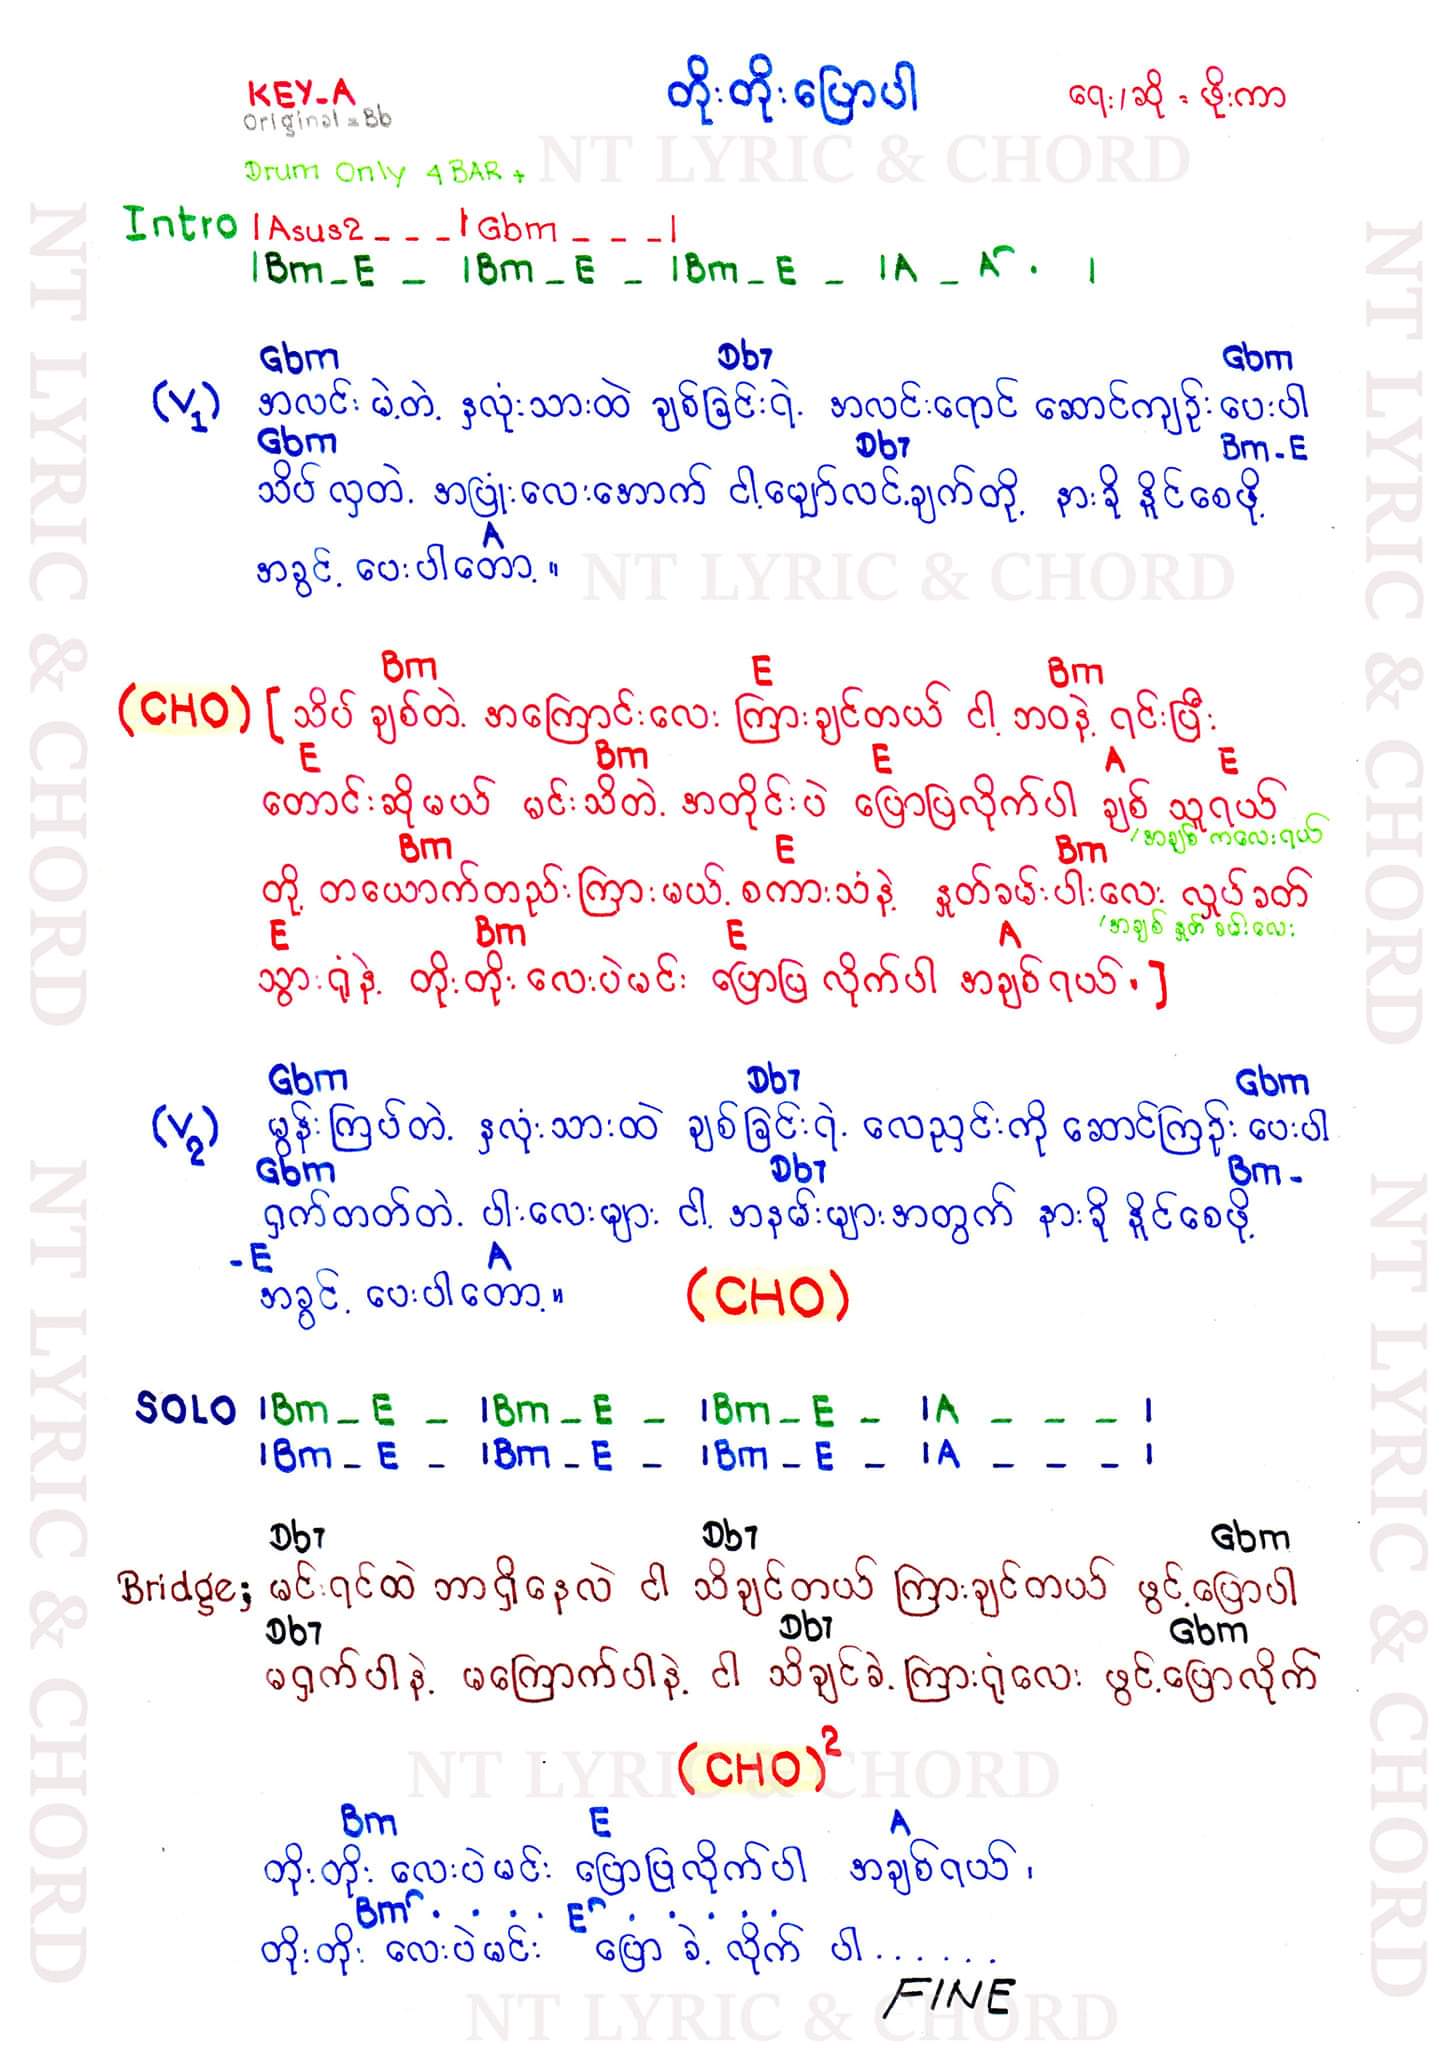 KEY-A
Original = Bb
တိုးတိုးပြောပါ
ရေး/ဆို = ဖိုးကာ
Drum Only 4 BAR +
NT LYRIC & CHORD
Intro |Asus2 _ _ _ | Gbm _ _ _ |
|Bm _ E _ |Bm _ E _ |Bm _ E _ |A _ A . |
Gbm Db7 Gbm
(V1) အလင်းမဲ့တဲ့ နှလုံးသားထဲ ချစ်ခြင်းရဲ့ အလင်းရောင် ဆောင်ကျဉ်းပေးပါ
Gbm Db7 Bm - E
သိပ်လှတဲ့ အပြုံးလေးအောက် ငါ့မျှော်လင့်ချက်တို့ နားခိုနိူင်စေဖို့
A
အခွင့် ပေးပါတော့ ။
NT LYRIC & CHORD
Bm E Bm
(CHO) [ သိပ်ချစ်တဲ့ အကြောင်းလေး ကြားချင်တယ် ငါ့ဘဝနဲ့ ရင်းပြီး
E Bm E A E
တောင်းဆိုမယ် မင်းသိတဲ့ အတိုင်းပဲ ပြောပြလိုက်ပါ ချစ်သူရယ်
/အချစ်ကလေးရယ်
Bm E Bm
တို့ တယောက်တည်းကြားမယ့် စကားသံနဲ့ နှုတ်ခမ်းပါးလေး လှုပ်ခတ်
/အချစ် နှုတ်ခမ်းလေး
E Bm E A
သွားရုံနဲ့ တိုးတိုးလေးပဲမင်း ပြောပြလိုက်ပါ အချစ်ရယ် ၊ ]
Gbm Db7 Gbm
(V2) မွန်းကြပ်တဲ့ နှလုံးသားထဲ ချစ်ခြင်းရဲ့ လေညှင်းကို ဆောင်ကြဉ်းပေးပါ
Gbm Db7 Bm -
ရှက်တတ်တဲ့ ပါးလေးများ ငါ့ အနမ်းများအတွက် နားခိုနိူင်စေဖို့
- E A
အခွင့် ပေးပါတော့ ။
(CHO)
SOLO |Bm _ E _ |Bm _ E _ |Bm _ E _ |A _ _ _ |
|Bm _ E _ |Bm _ E _ |Bm _ E _ |A _ _ _ |
Db7 Db7 Gbm
Bridge; မင်းရင်ထဲ ဘာရှိနေလဲ ငါ သိချင်တယ် ကြားချင်တယ် ဖွင့်ပြောပါ
Db7 Db7 Gbm
မရှက်ပါနဲ့ မကြောက်ပါနဲ့ ငါ သိချင်ခဲ့ ကြားရုံလေး ဖွင့်ပြောလိုက်
(CHO)2
NT LYRIC & CHORD
Bm E A
တိုးတိုးလေးပဲမင်း ပြောပြလိုက်ပါ အချစ်ရယ် ၊
Bm . . . . E . . . . .
တိုးတိုးလေးပဲမင်း ပြောခဲ့လိုက်ပါ . . . . . .
FINE
NT LYRIC & CHORD
NT LYRIC & CHORD
NT LYRIC & CHORD
NT LYRIC & CHORD
NT LYRIC & CHORD